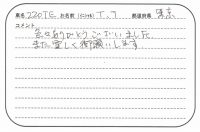 車名 220TE お名前(イニシャル) T.T 都道府県 東京
コメント
色々ありがとうございました
また宜しく御願いします